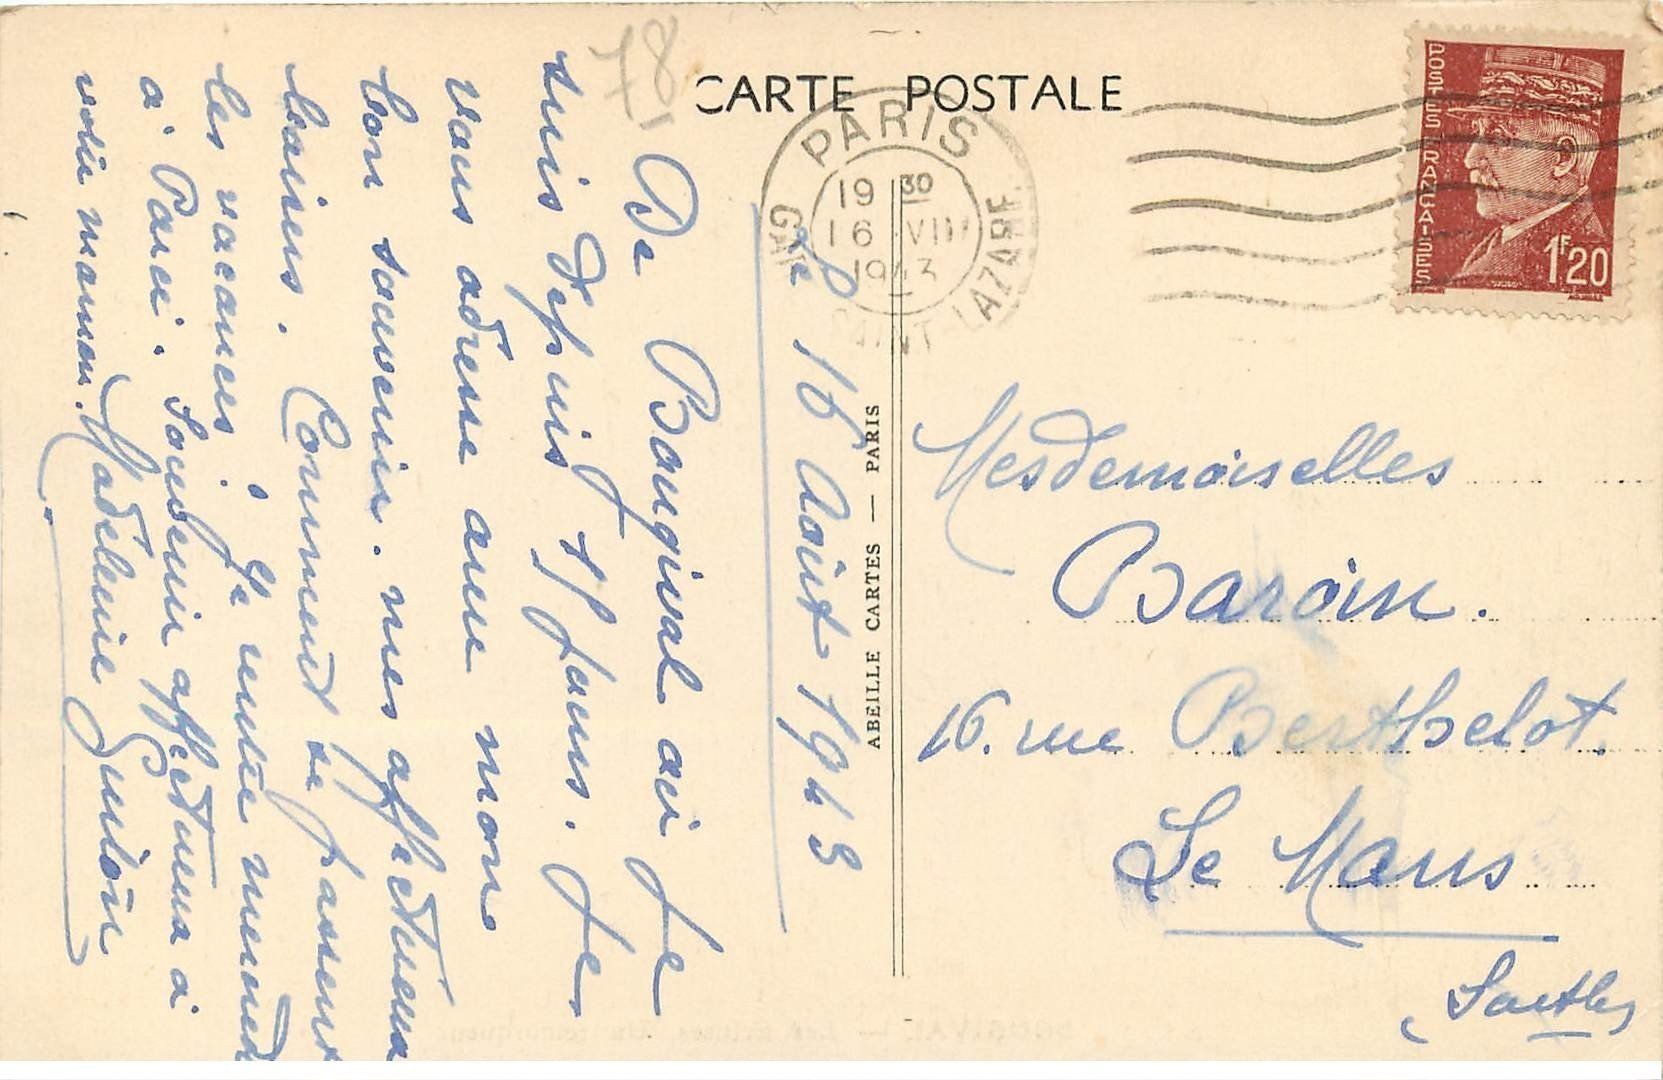 CARTE POSTALE
78
POSTES FRANÇAISES
1F20
PARIS
GARE SAINT-LAZARE
19 30
16 VIII
1943
Le 16 Août 1943
De Bougival où je
suis depuis 15 jours. Je
vous adresse avec mon
bon souvenir. mes affectueux
baisers. Comment se passent
les vacances ? Je rentre mercredi
à Paris. Souvenir affectueux à
votre maman. Madeleine
ABEILLE CARTES — PARIS
Mesdemoiselles
Baroin.
16. rue Berthelot.
Le Mans
Sarthe
BOUGIVAL — Les Écluses. Un remorqueur